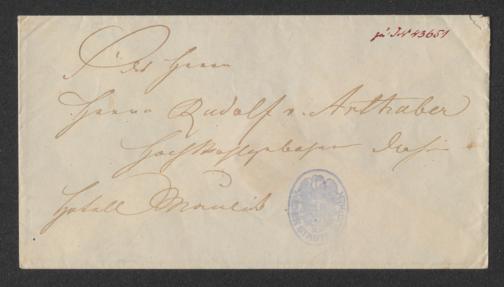 zu JN 43651
Des Herrn
Herrn Rudolf v. Arthaber
Hochwohlgeboren
Hotell